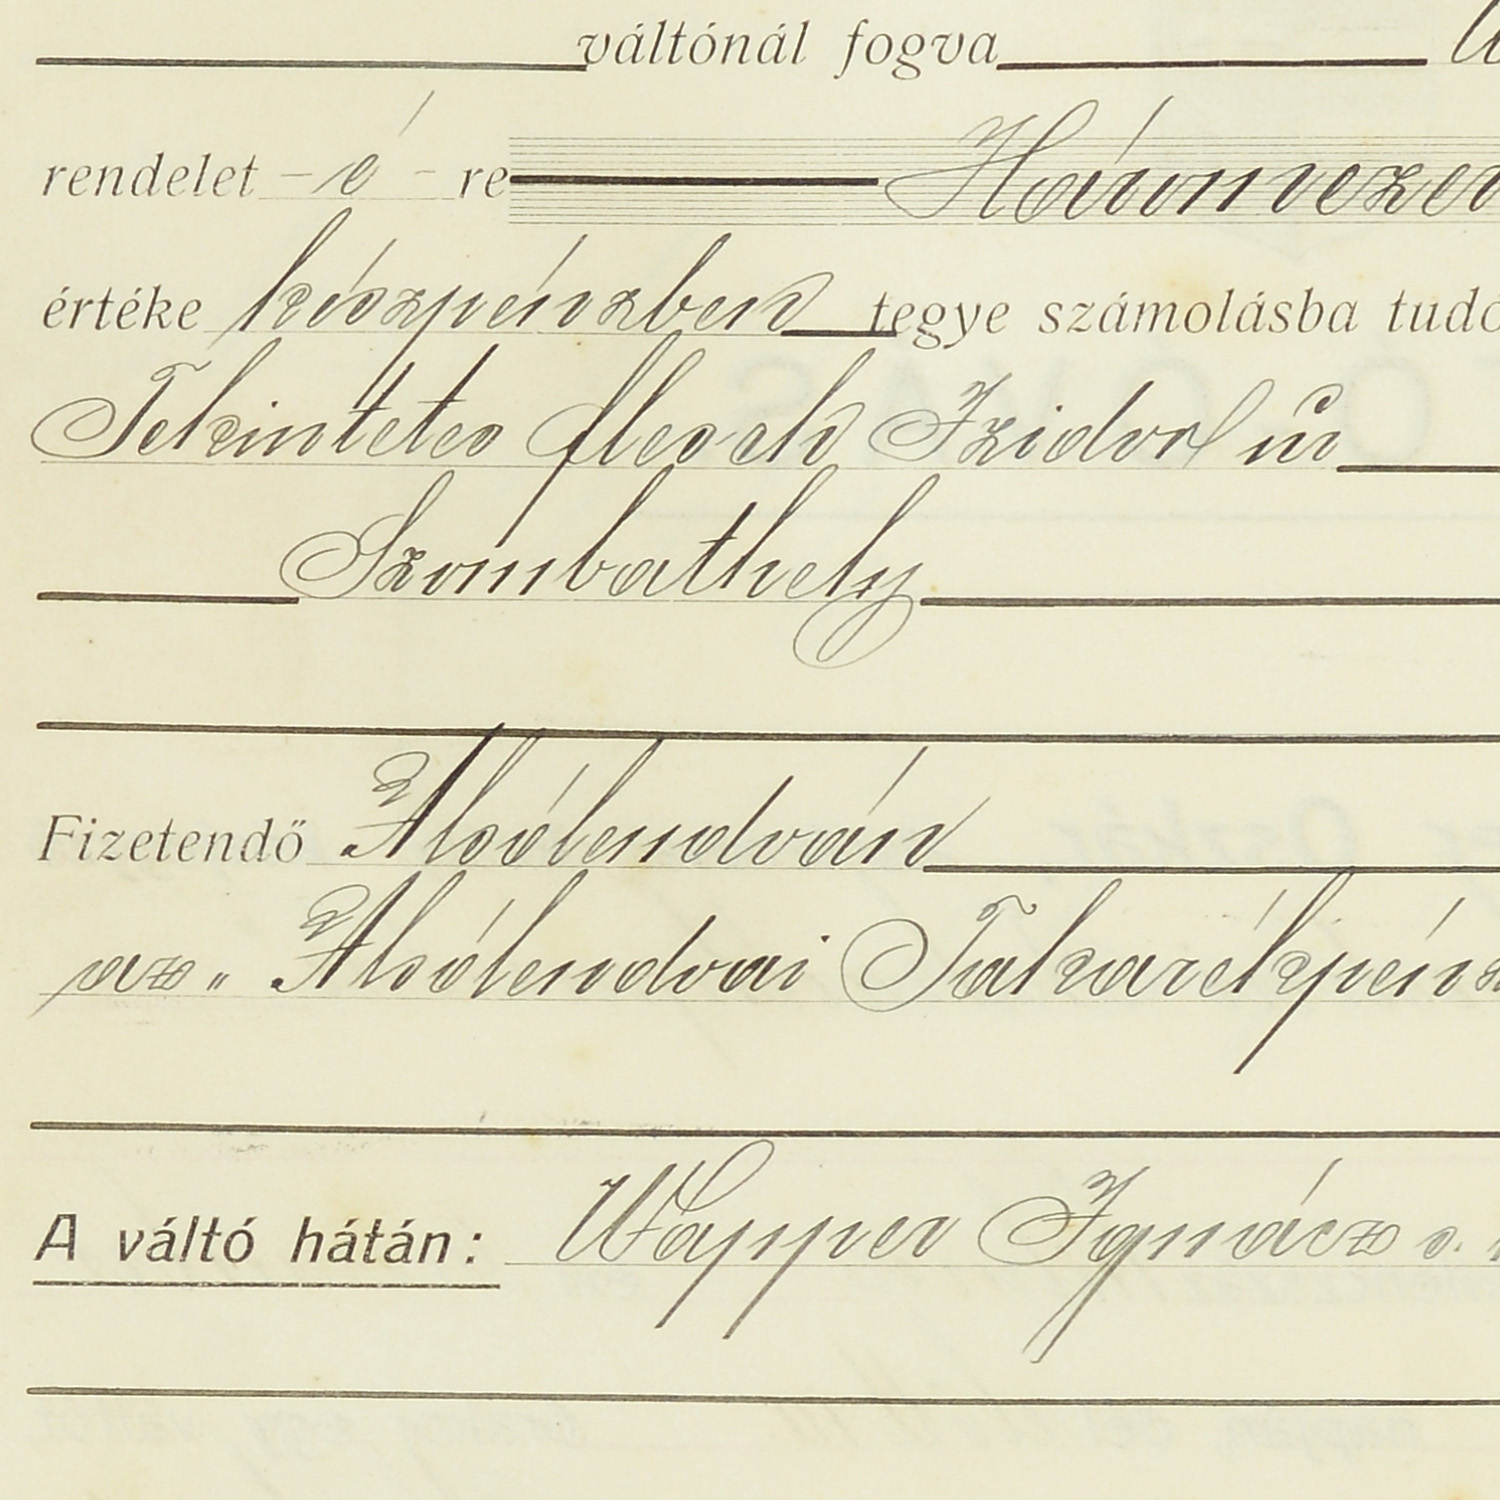 váltónál fogva
rendelet - é - re Háromezer
értéke készpénzben tegye számolásba tudó
Tekintetes Flesch Izidor úr
Szombathely
Fizetendő Alsólendván
az „ Alsólendvai Takarékpénz
A váltó hátán: Wapper Ignácz s.